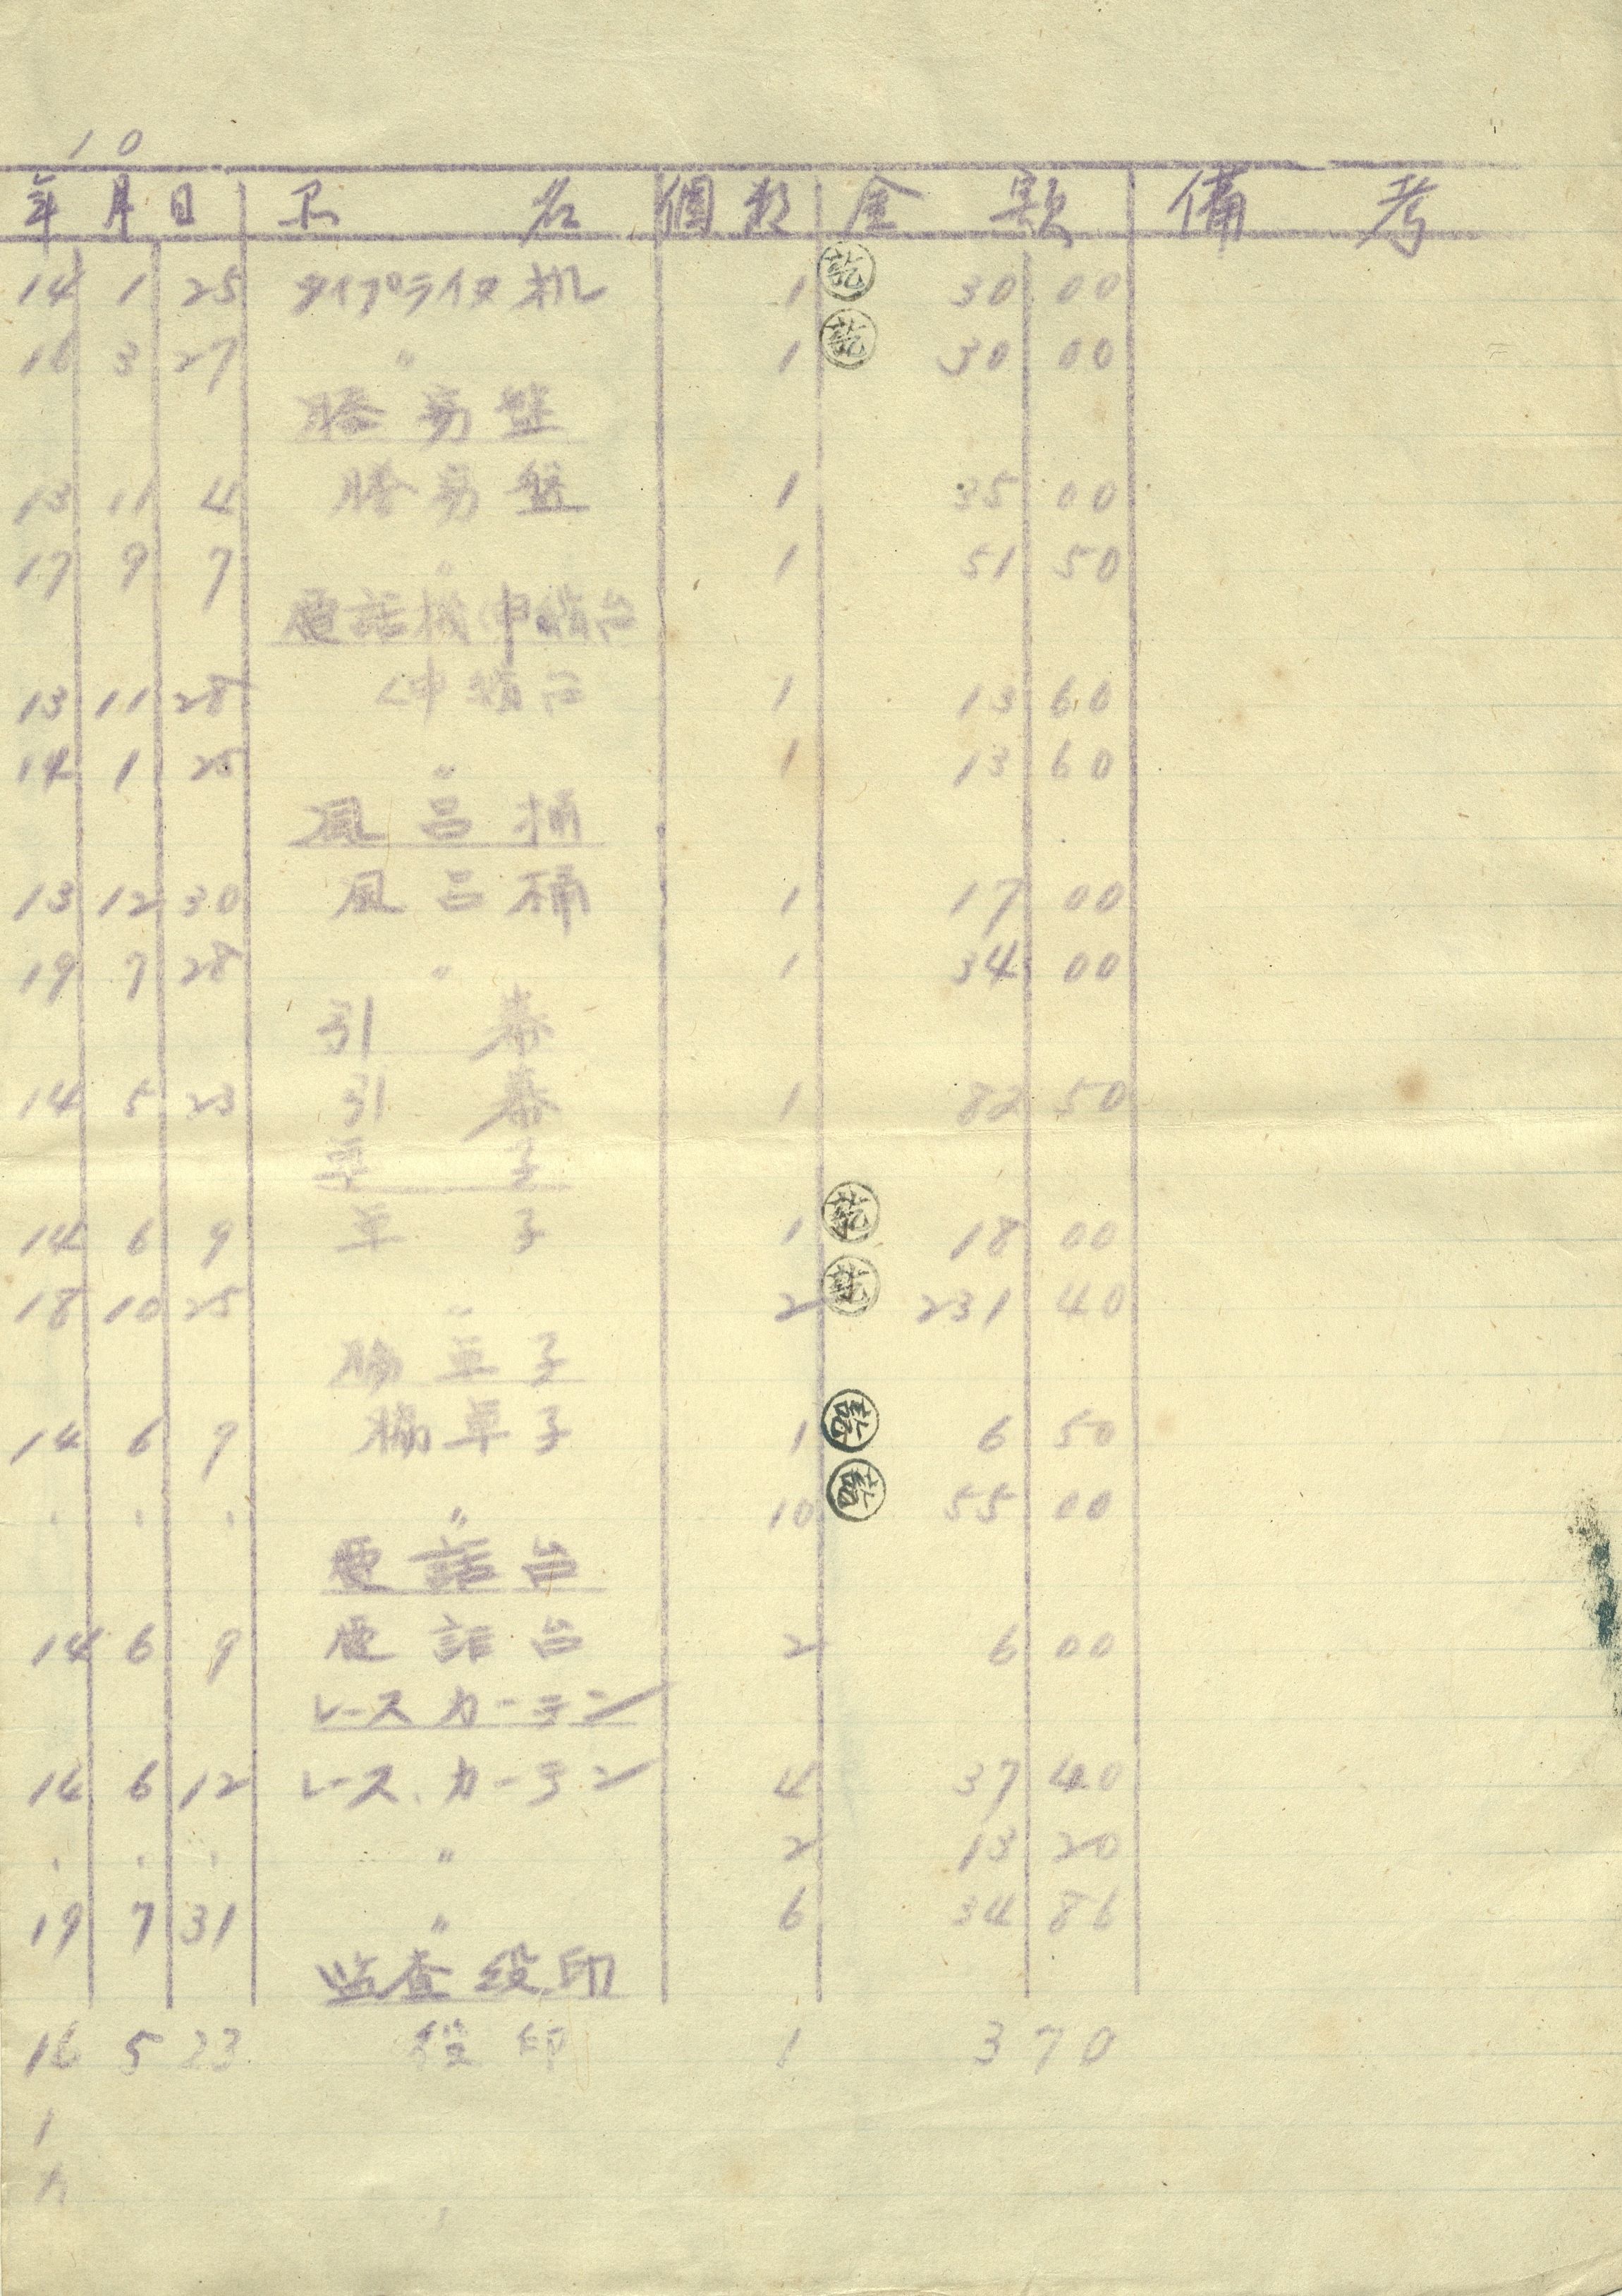 10
年 月 日 品 名 個数 金 額 備 考
14 1 25 タイプライタ机 1 30 00
16 3 27 〃 1 30 00
謄写盤
13 11 4 謄写盤 1 35 00
17 9 7 〃 1 51 50
電話機伸縮台
13 11 28 伸縮台 1 13 60
14 1 25 〃 1 13 60
風呂桶
13 12 30 風呂桶 1 17 00
19 7 28 〃 1 34 00
引 幕
14 5 23 引 幕 1 82 50
卓 子
14 6 9 卓 子 1 18 00
18 10 25 〃 2 231 40
脇卓子
14 6 9 脇卓子 1 6 50
. . . 〃 10 55 00
電話台
14 6 9 電話台 2 6 00
レースカーテン
14 6 12 レース.カーテン 4 37 40
. . . 〃 2 13 20
19 7 31 〃 6 34 86
監査役印
16 5 23 役印 1 3 70